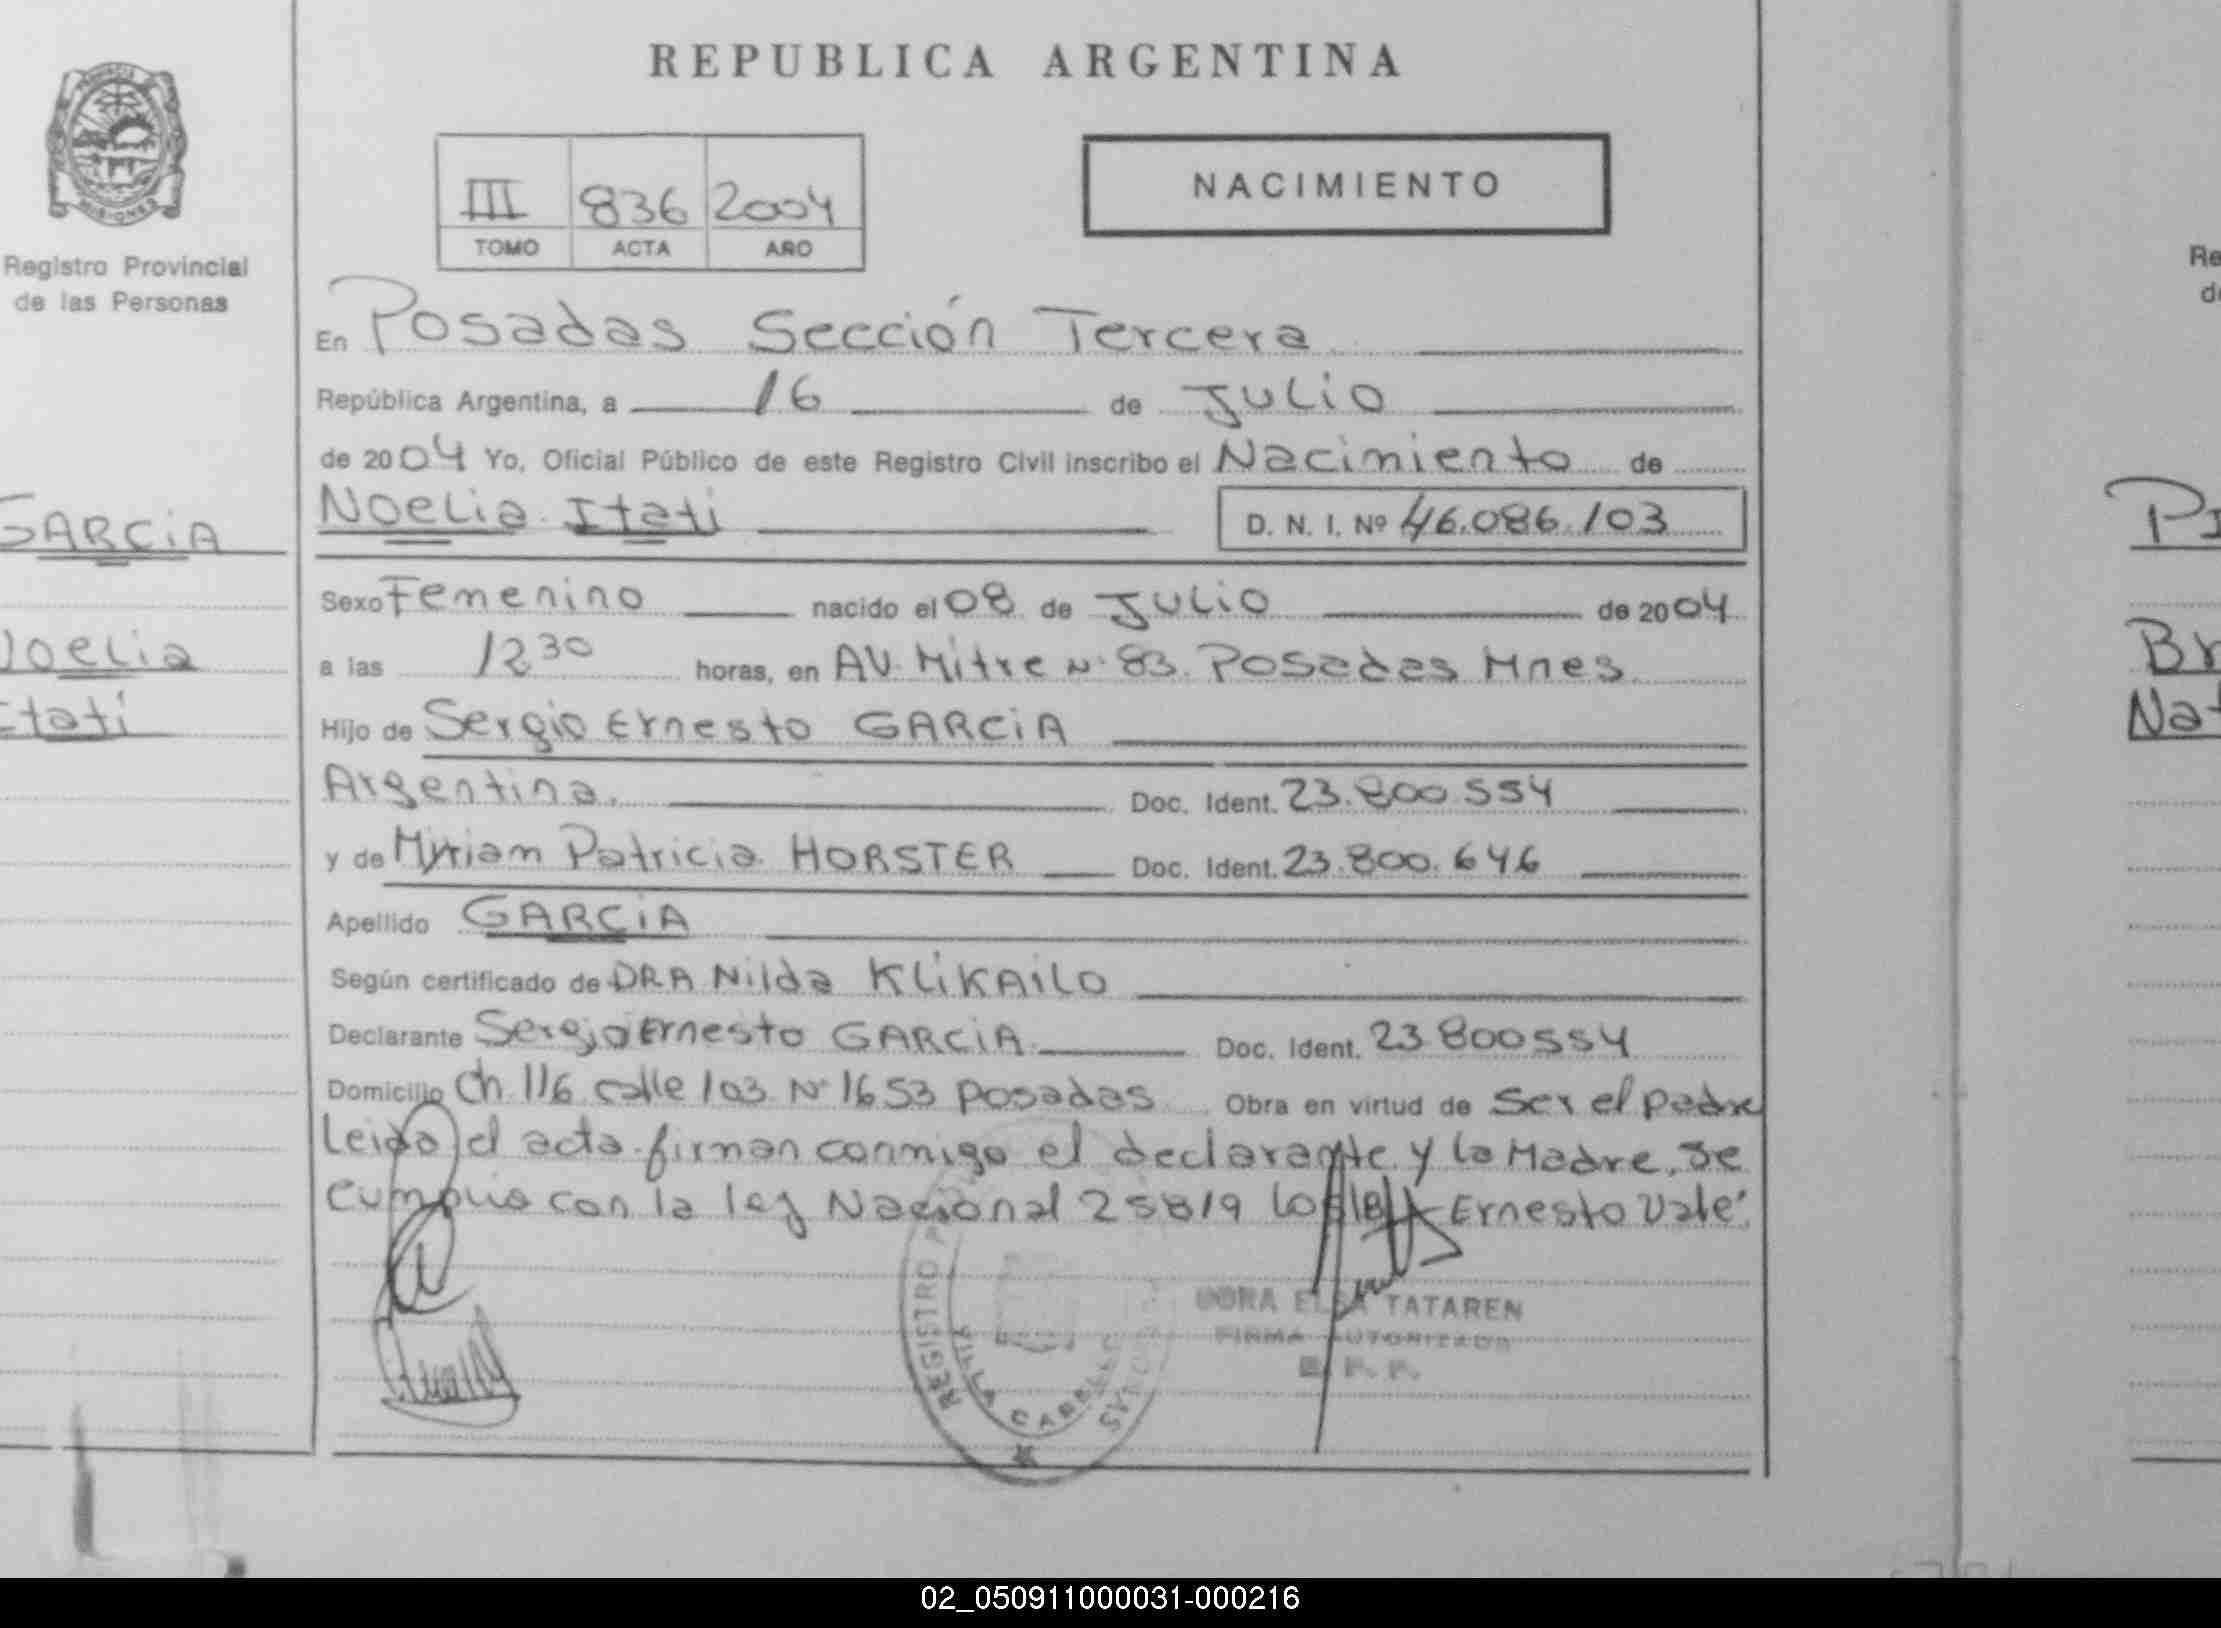 REPUBLICA ARGENTINA
MISIONES
Registro Provincial
de las Personas
III 836 2004
TOMO ACTA AÑO
NACIMIENTO
En Posadas Sección Tercera
República Argentina, a 16 de Julio
de 2004 Yo, Oficial Público de este Registro Civil inscribo el Nacimiento de
Noelia Itati D. N. I. Nº 46.086.103
GARCiA
Sexo Femenino nacido el 08 de Julio de 2004
Noelia
a las 12 30 horas, en AV. Mitre Nº 83. Posadas Mnes.
Itati
Hijo de Sergio Ernesto GARCiA
Argentina. Doc. Ident. 23.800.554
y de Myriam Patricia HORSTER Doc. Ident. 23.800.646
Apellido GARCiA
Según certificado de DRA Nilda KLiKAiLO
Declarante Sergio Ernesto GARCiA Doc. Ident. 23800554
Domicilio Ch. 116 calle 103 Nº 1653 posadas Obra en virtud de ser el padre
Leida el acta firman conmigo el declarante y la Madre, se
Cumplio con la ley Nacional 25819 Ernesto Vale
REGISTRO
VILLA CABELLO
TATAREN
FIRMA AUTORIZADA
R. P. P.
Re
PI
Br
Nat
02_050911000031-000216